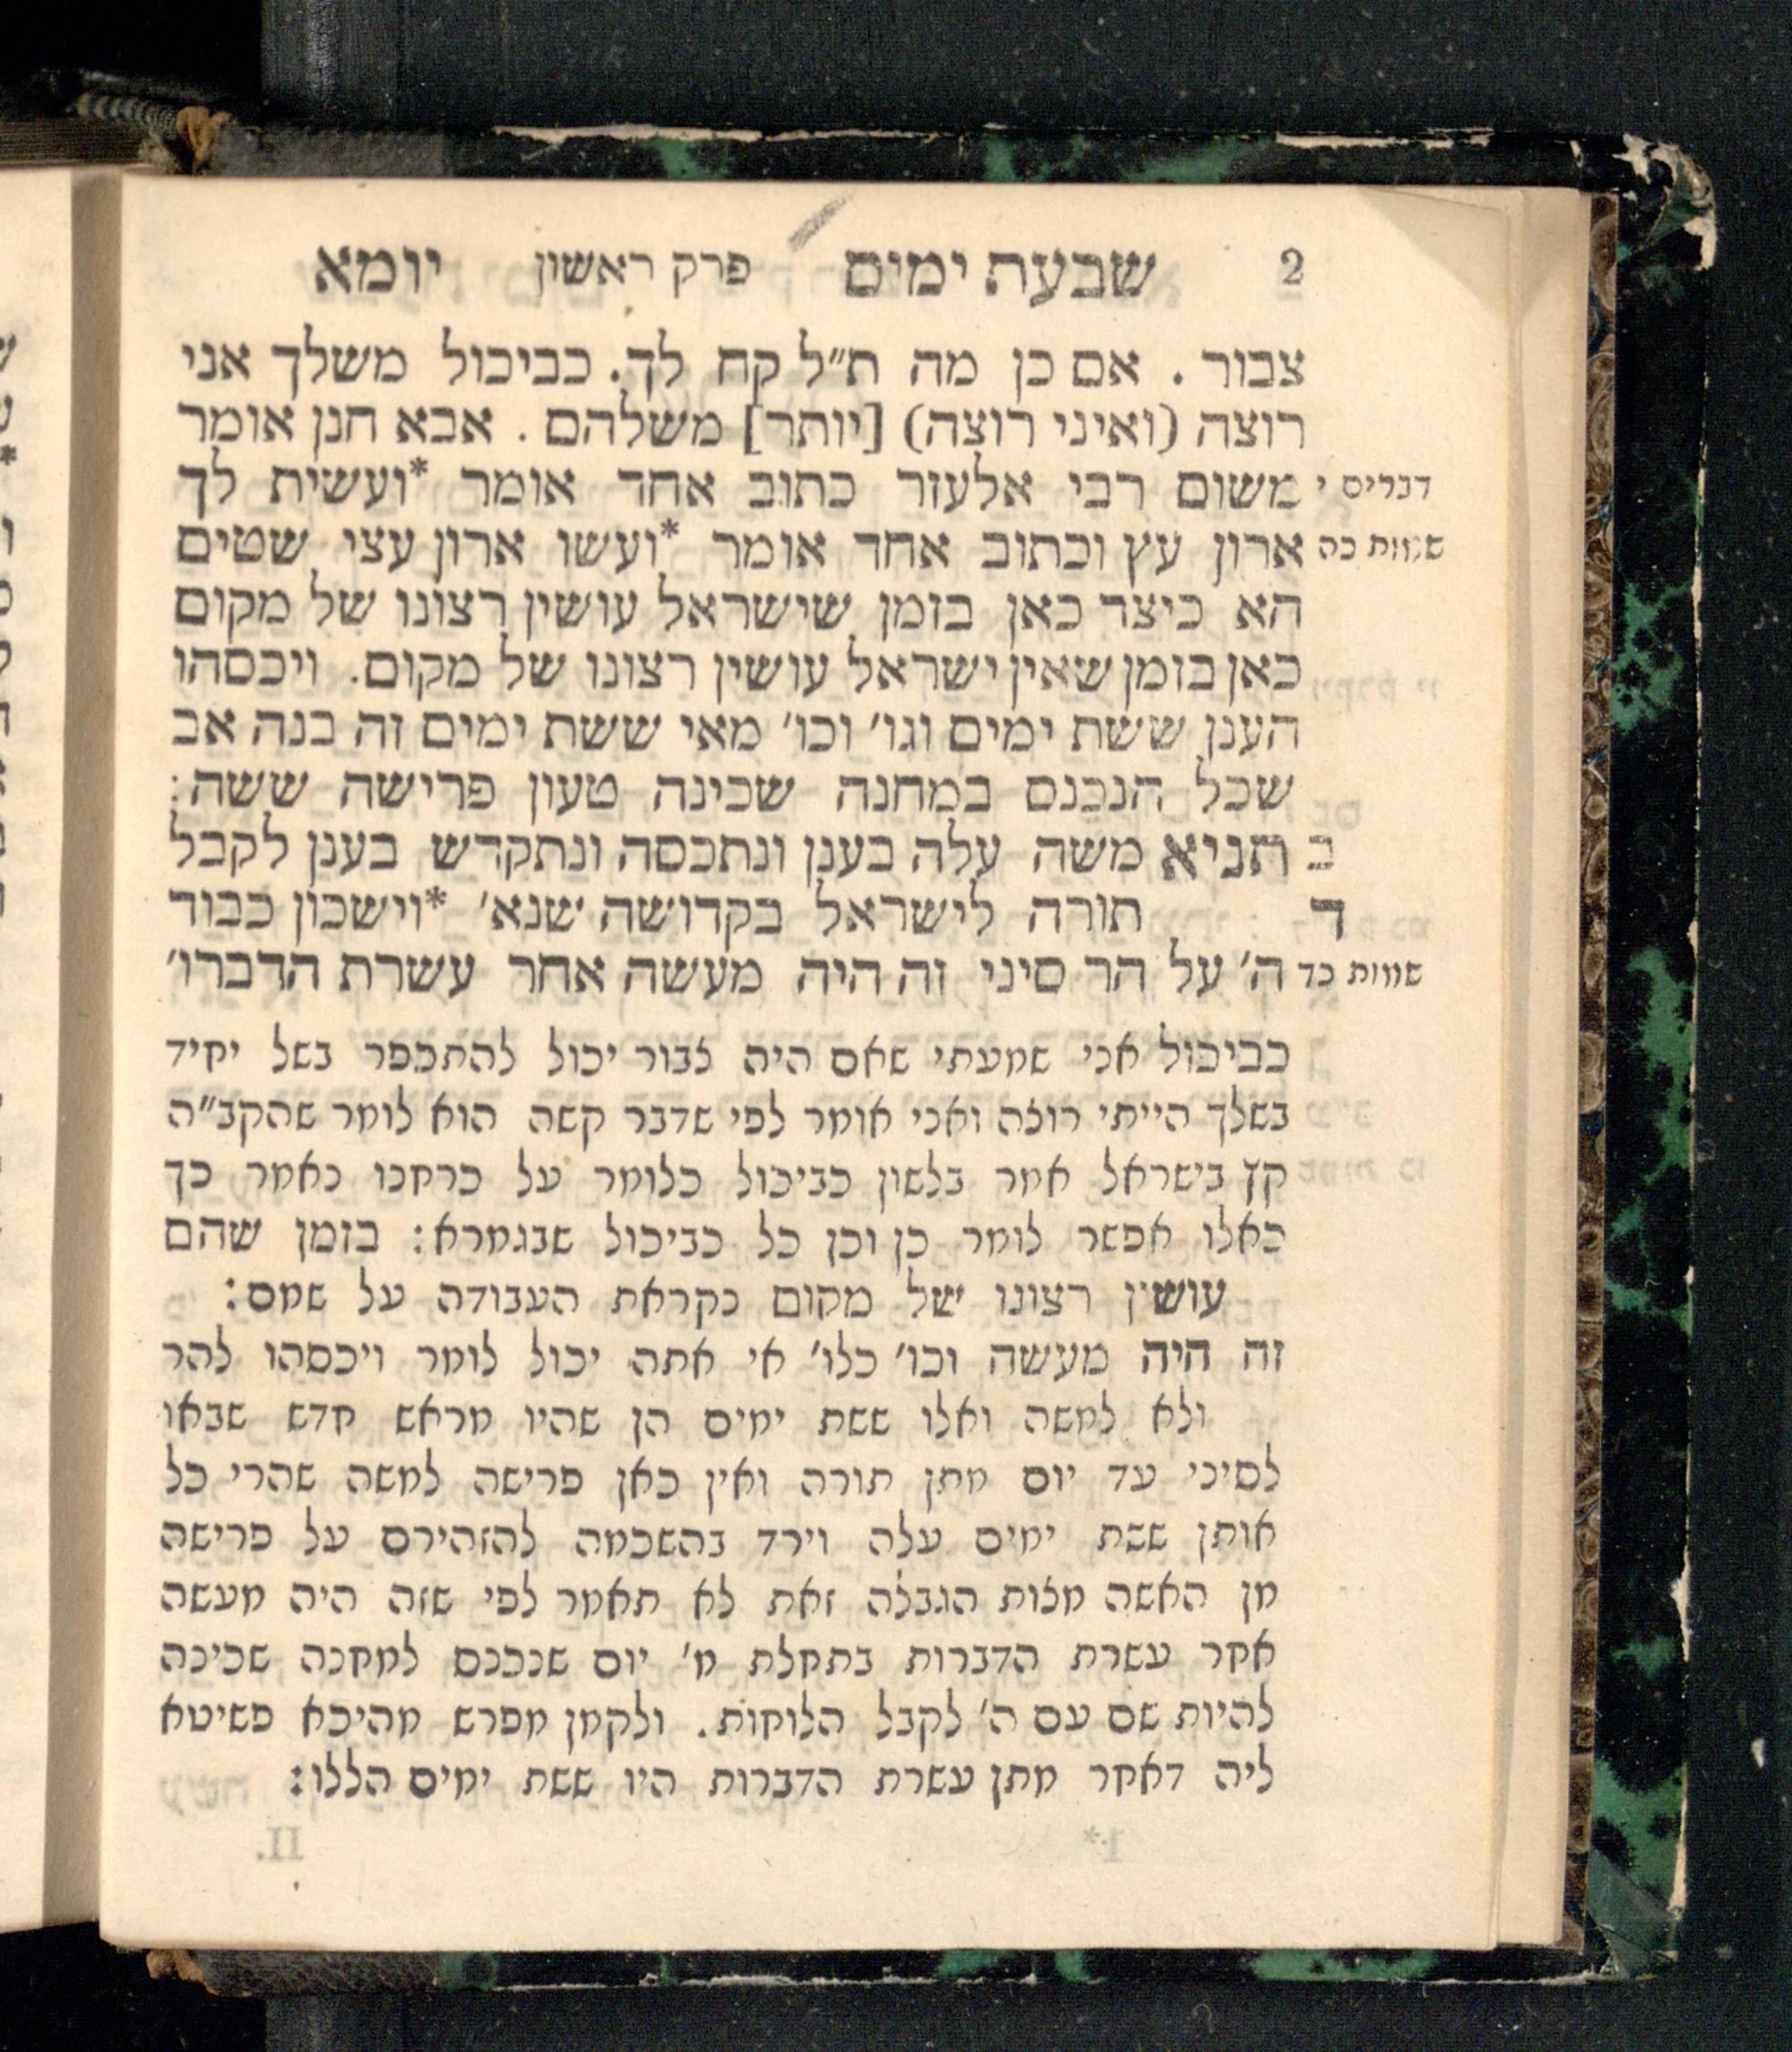 2 שבעת ימים פרק ראשון יומא
צבור . אם כן מה ת״ל קח לך. כביכול משלך אני
רוצה (ואיני רוצה) [יותר] משלהם . אבא חנן אומר
דברים י משום רבי אלעזר כתוב אחד אומר *ועשית לך
שמות כה ארון עץ וכתוב אחד אומר *ועשו ארון עצי שטים
הא כיצד כאן בזמן שישראל עושין רצונו של מקום
כאן בזמן שאין ישראל עושין רצונו של מקום. ויכסהו
הענן ששת ימים וגו׳ וכו׳ מאי ששת ימים זה בנה אב
שכל הנכנס במחנה שכינה טעון פרישה ששה:
ב תניא משה עלה בענן ונתכסה ונתקדש בענן לקבל
ד תורה לישראל בקדושה שנא׳ *וישכון כבוד
שמות כד ה׳ על הר סיני זה היה מעשה אחר עשרת הדברו׳
כביכול אני שמעתי שאם היה צבור יכול להתכפר בשל יחיד
בשלך הייתי רוצה ואני אומר לפי שדבר קשה הוא לומר שהקב״ה
קץ בישראל אמר בלשון כביכול כלומר על כרחנו נאמר כך
כאלו אפשר לומר כן וכן כל כביכול שבגמרא: בזמן שהם
עושין רצונו של מקום נקראת העבודה על שמם:
זה היה מעשה וכו׳ כלו׳ אי אתה יכול לומר ויכסהו להר
ולא למשה ואלו ששת ימים הן שהיו מראש חדש שבאו
לסיני עד יום מתן תורה ואין כאן פרישה למשה שהרי כל
אותן ששת ימים עלה וירד בהשכמה להזהירם על פרישה
מן האשה מצות הגבלה זאת לא תאמר לפי שזה היה מעשה
אחר עשרת הדברות בתחלת מ׳ יום שנכנס למחנה שכינה
להיות שם עם ה׳ לקבל הלוחות. ולקמן מפרש מהיכא פשיטא
ליה דאחר מתן עשרת הדברות היו ששת ימים הללו: